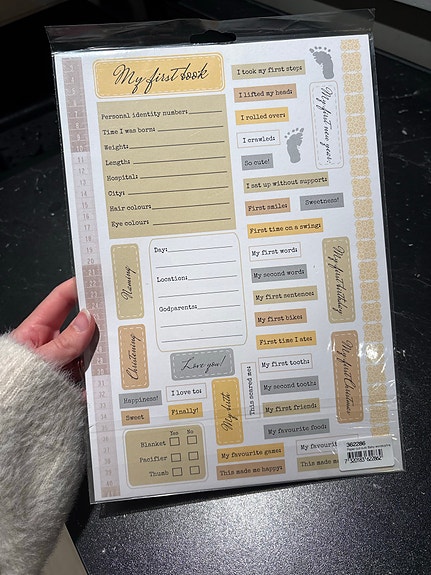 My first book
Personal identity number:
Time I was born:
Weight:
Length:
Hospital:
City:
Hair colour:
Eye colour:
I took my first step:
I lifted my head:
I rolled over:
I crawled:
So cute!
My first new year:
I sat up without support:
First smile:
Sweetness!
First time on a swing:
Naming
Day:
Location:
Godparents:
My first word:
My second word:
My first sentence:
My first bike:
First time I ate:
My first birthday
Christening
Love you!
My first tooth:
My second tooth:
My first friend:
My favourite food:
My first Christmas
Happiness!
I love to:
Sweet
Finally!
My birth
This scared me:
Yes No
Blanket
Pacifier
Thumb
My favourite game:
This made me happy:
My favouri
This made m
362286